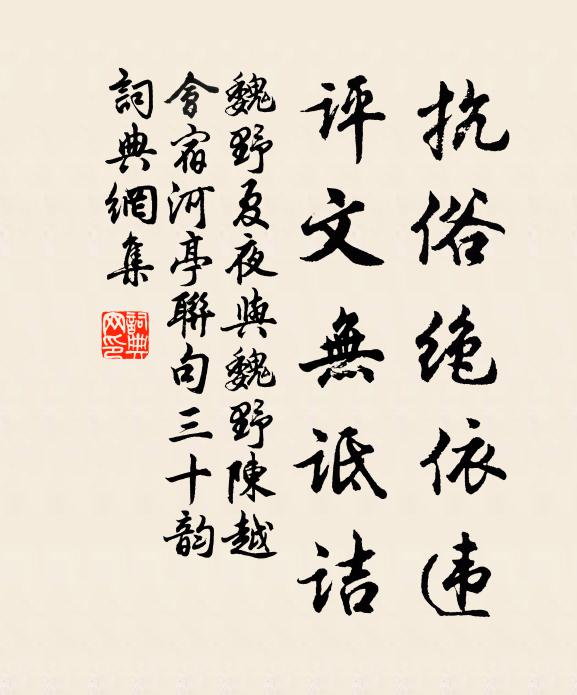 抗俗绝依违
评文無诋诘
魏野夏夜與魏野陳越
會宿河亭聯句三十韵
詞典網集
詞典
网印